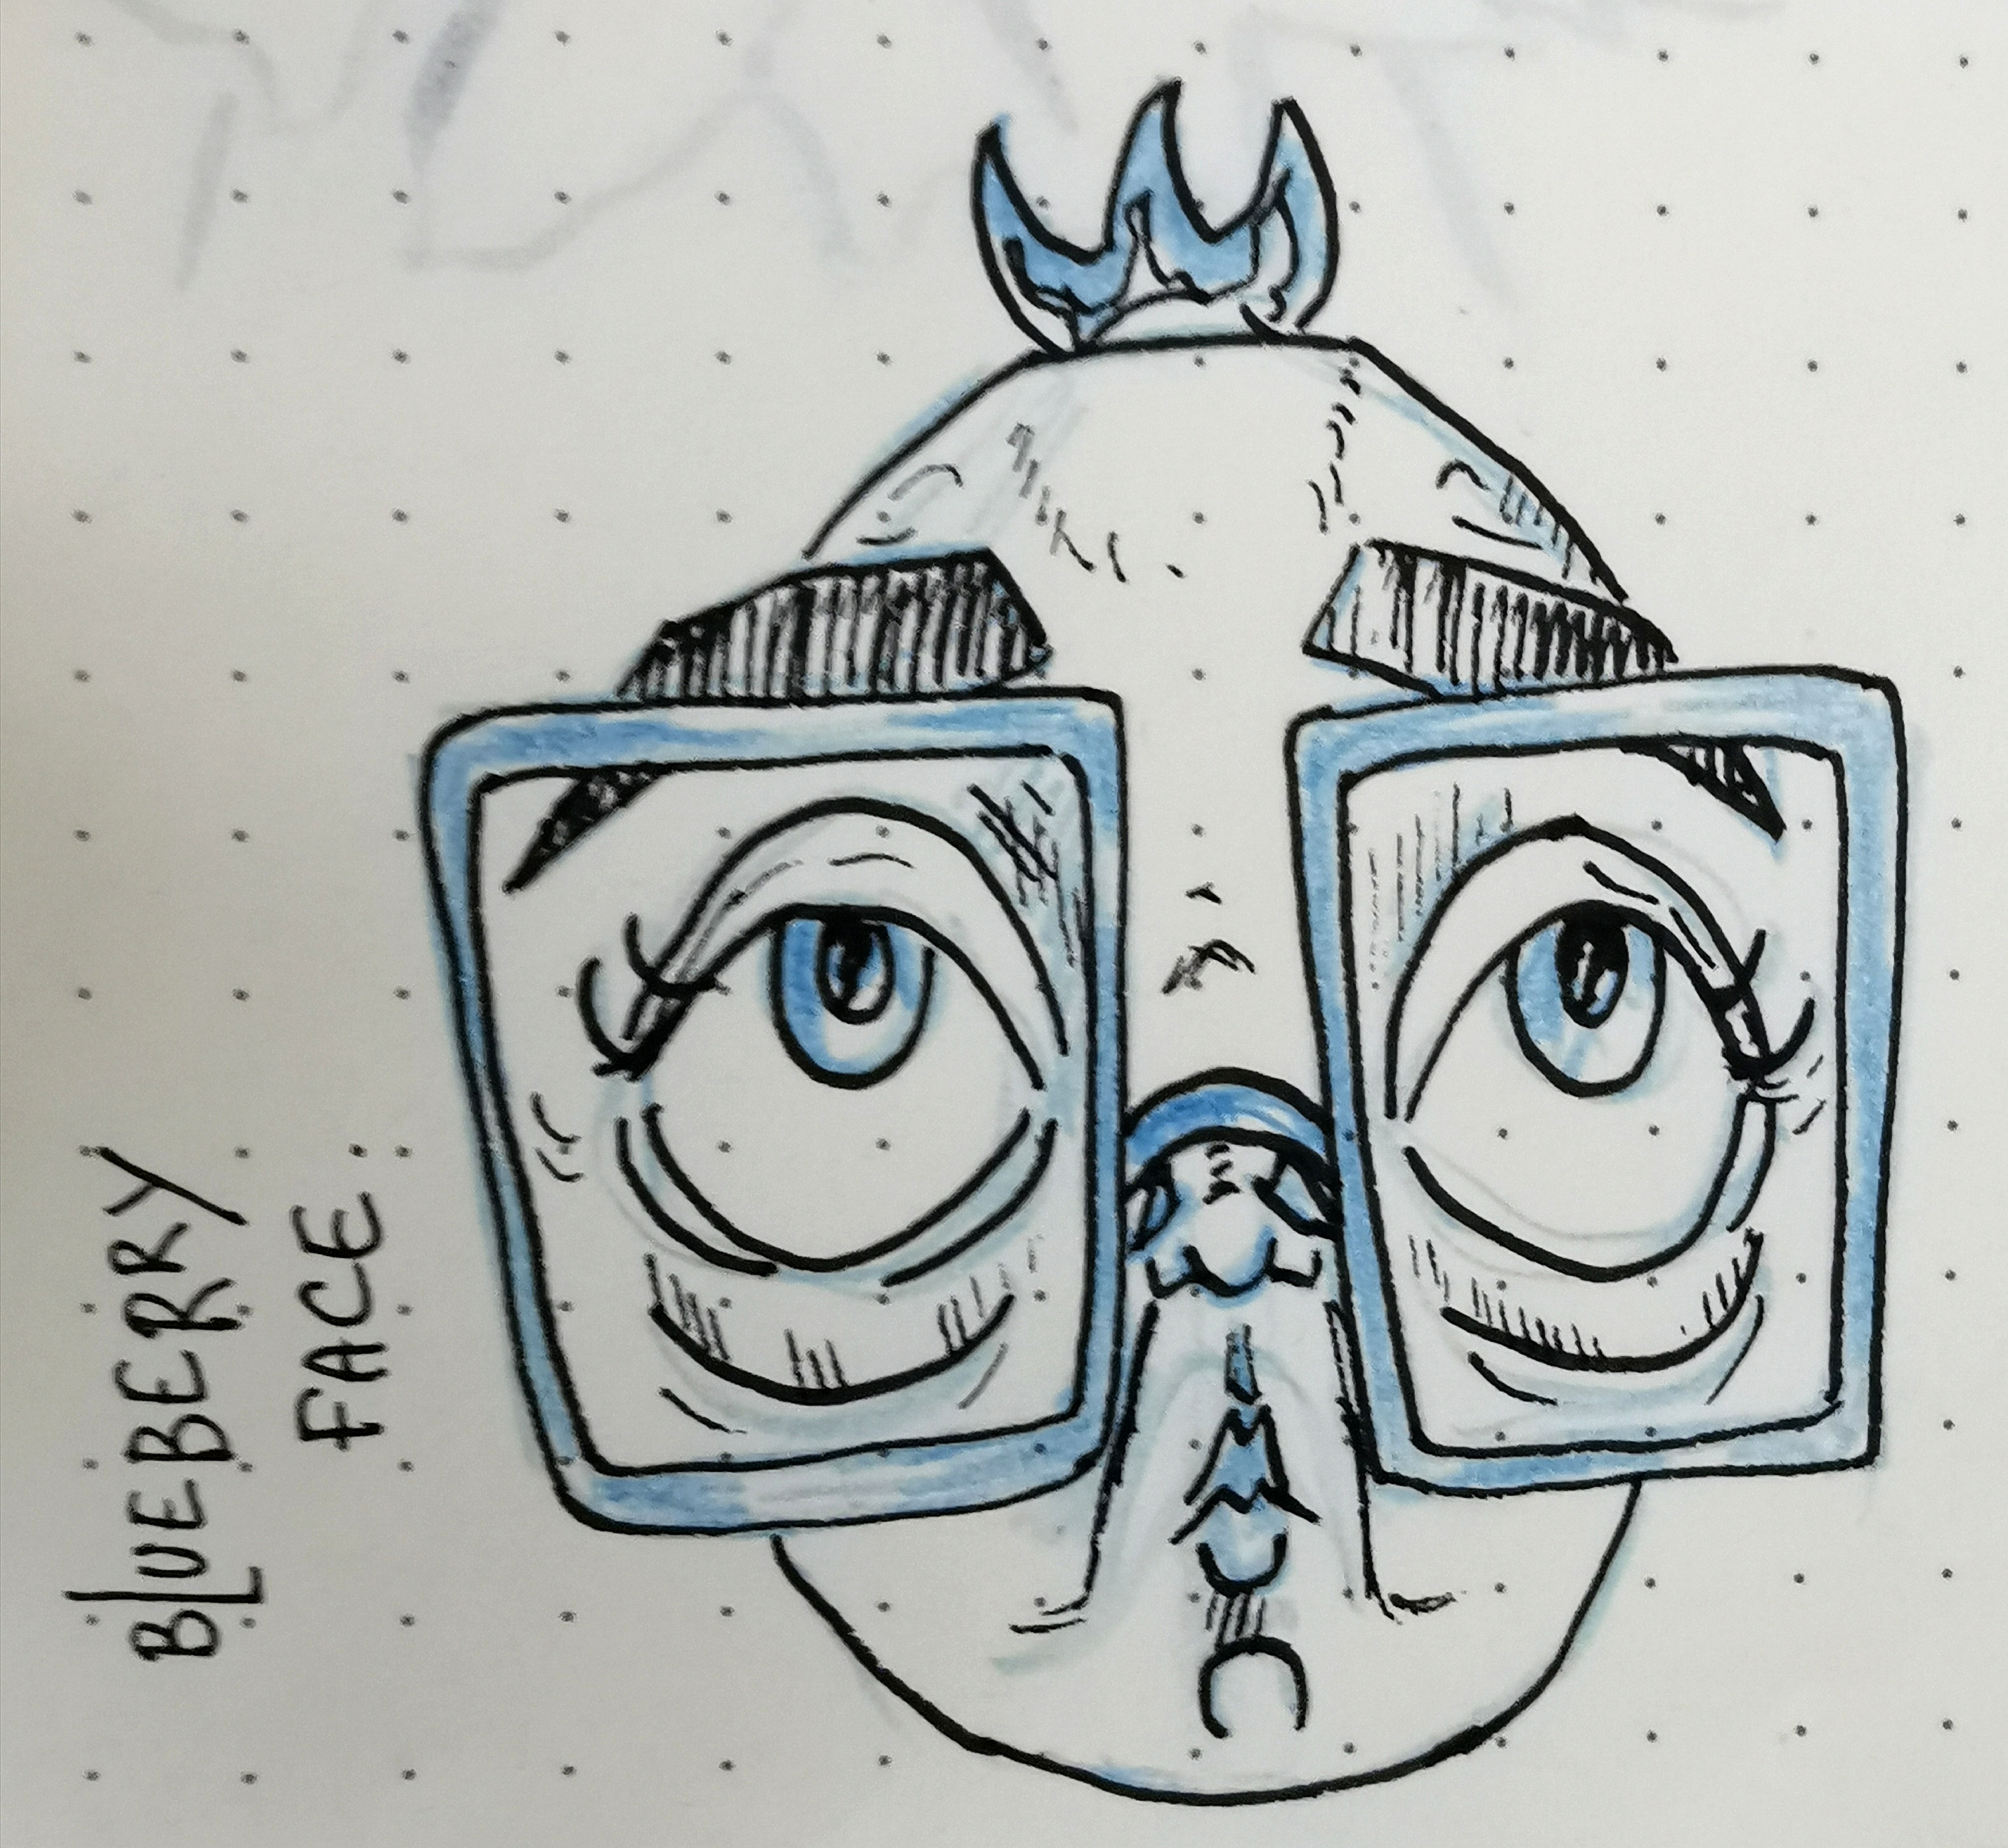 BLUEBERRY
FACE.